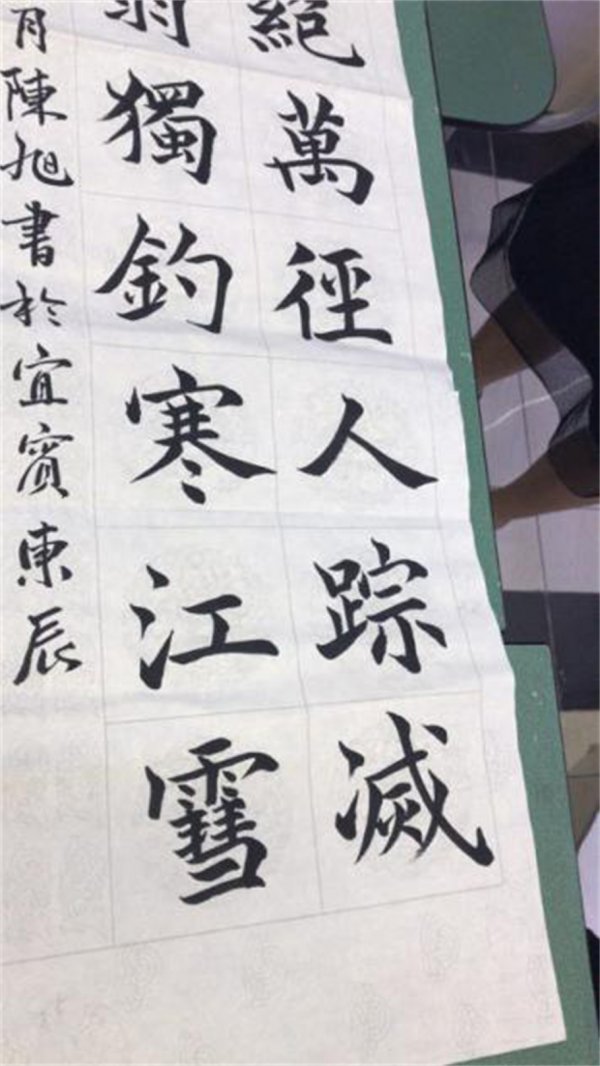 絕萬徑人踪滅
翁獨釣寒江雪
月陳旭書於宜賓東辰